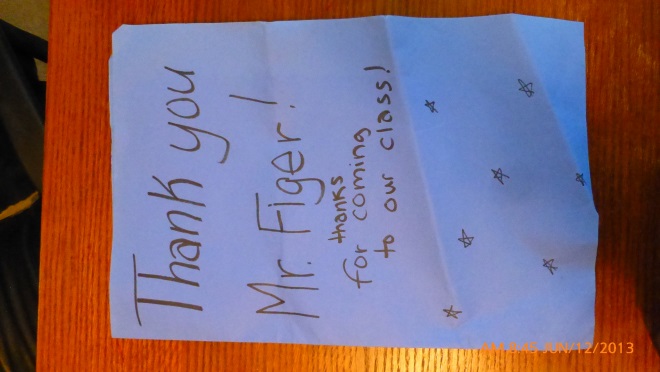 Thank you
Mr. Figer!
thanks
for coming
to our class!
AM 8:45 JUN/12/2013